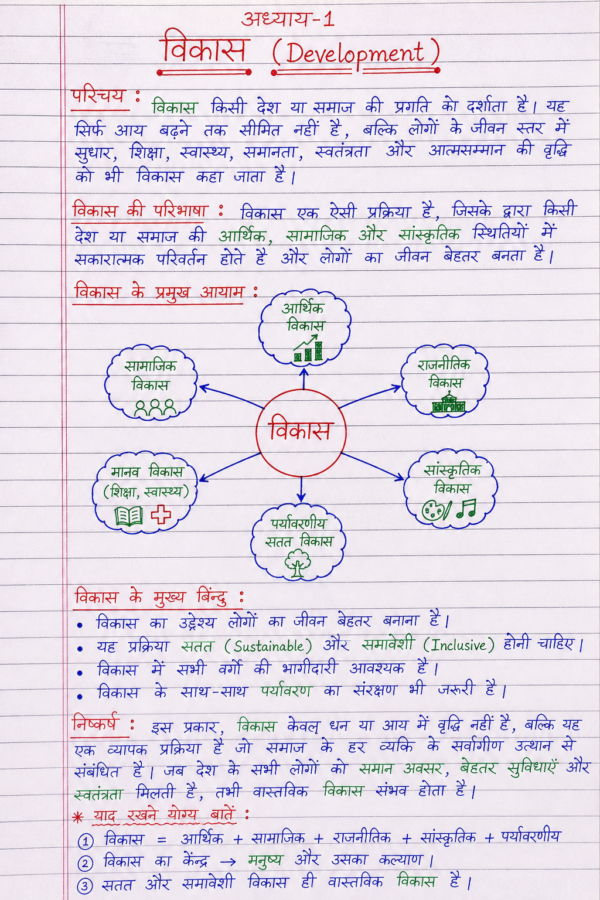 अध्याय-1
विकास (Development)
परिचय : विकास किसी देश या समाज की प्रगति को दर्शाता है। यह
सिर्फ आय बढ़ने तक सीमित नहीं है, बल्कि लोगों के जीवन स्तर में
सुधार, शिक्षा, स्वास्थ्य, समानता, स्वतंत्रता और आत्मसम्मान की वृद्धि
को भी विकास कहा जाता है।
विकास की परिभाषा : विकास एक ऐसी प्रक्रिया है, जिसके द्वारा किसी
देश या समाज की आर्थिक, सामाजिक और सांस्कृतिक स्थितियों में
सकारात्मक परिवर्तन होते है और लोगों का जीवन बेहतर बनता है।
विकास के प्रमुख आयाम :
आर्थिक
विकास
सामाजिक
विकास
राजनीतिक
विकास
विकास
मानव विकास
(शिक्षा, स्वास्थ्य)
सांस्कृतिक
विकास
पर्यावरणीय
सतत विकास
विकास के मुख्य बिंन्दु :
• विकास का उद्देश्य लोगों का जीवन बेहतर बनाना है।
• यह प्रक्रिया सतत (Sustainable) और समावेशी (Inclusive) होनी चाहिए।
• विकास में सभी वर्गो की भागीदारी आवश्यक है।
• विकास के साथ-साथ पर्यावरण का संरक्षण भी जरूरी है।
निष्कर्ष : इस प्रकार, विकास केवल् धन या आय में वृद्धि नहीं है, बल्कि यह
एक व्यापक प्रक्रिया है जो समाज के हर व्यकि के सर्वागीण उत्थान से
संबंधित है। जब देश के सभी लोगों को समान अवसर, बेहतर सुविधाएँ और
स्वतंत्रता मिलती है, तभी वास्तविक विकास संभव होता है।
* याद रखने योग्य बातें :
① विकास = आर्थिक + सामाजिक + राजनीतिक + सांस्कृतिक + पर्यावरणीय
② विकास का केंन्द्र → मनुष्य और उसका कल्याण।
③ सतत और समावेशी विकास ही वास्तविक विकास है।